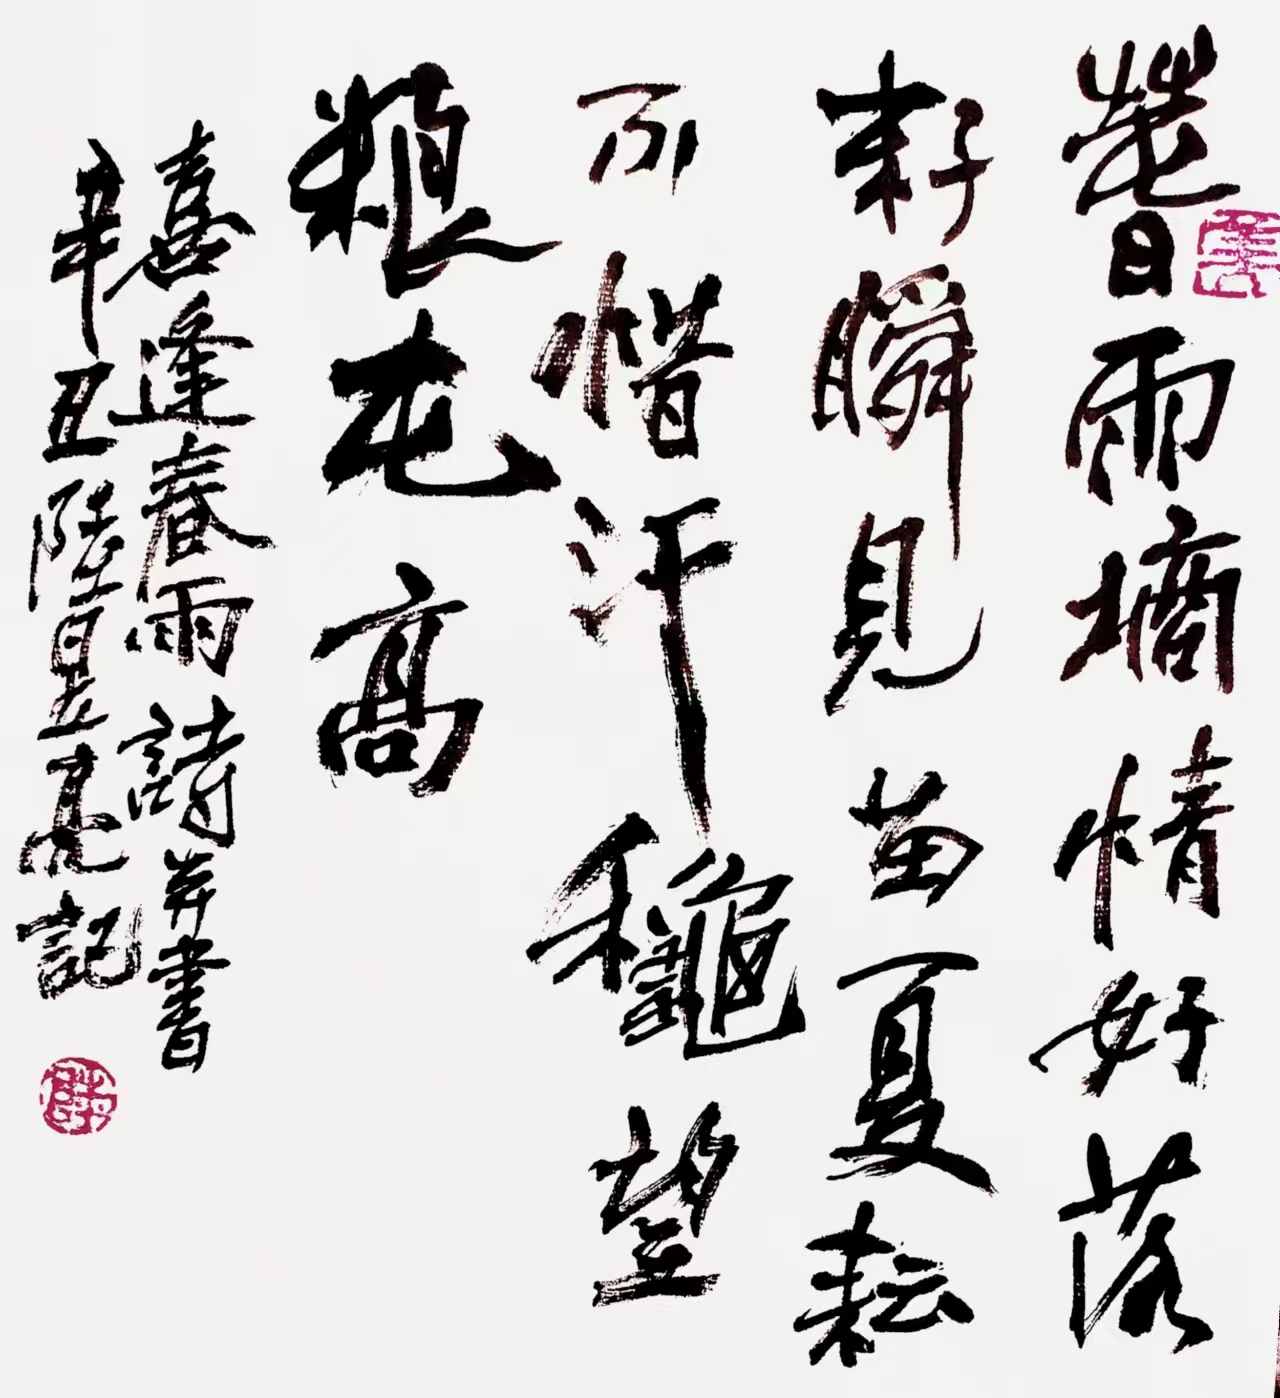 萅雨墒情好落
籽瞬見苗夏耘
不惜汗龝望
粮屯高
喜逢春雨詩并書
辛丑陸月五亮記